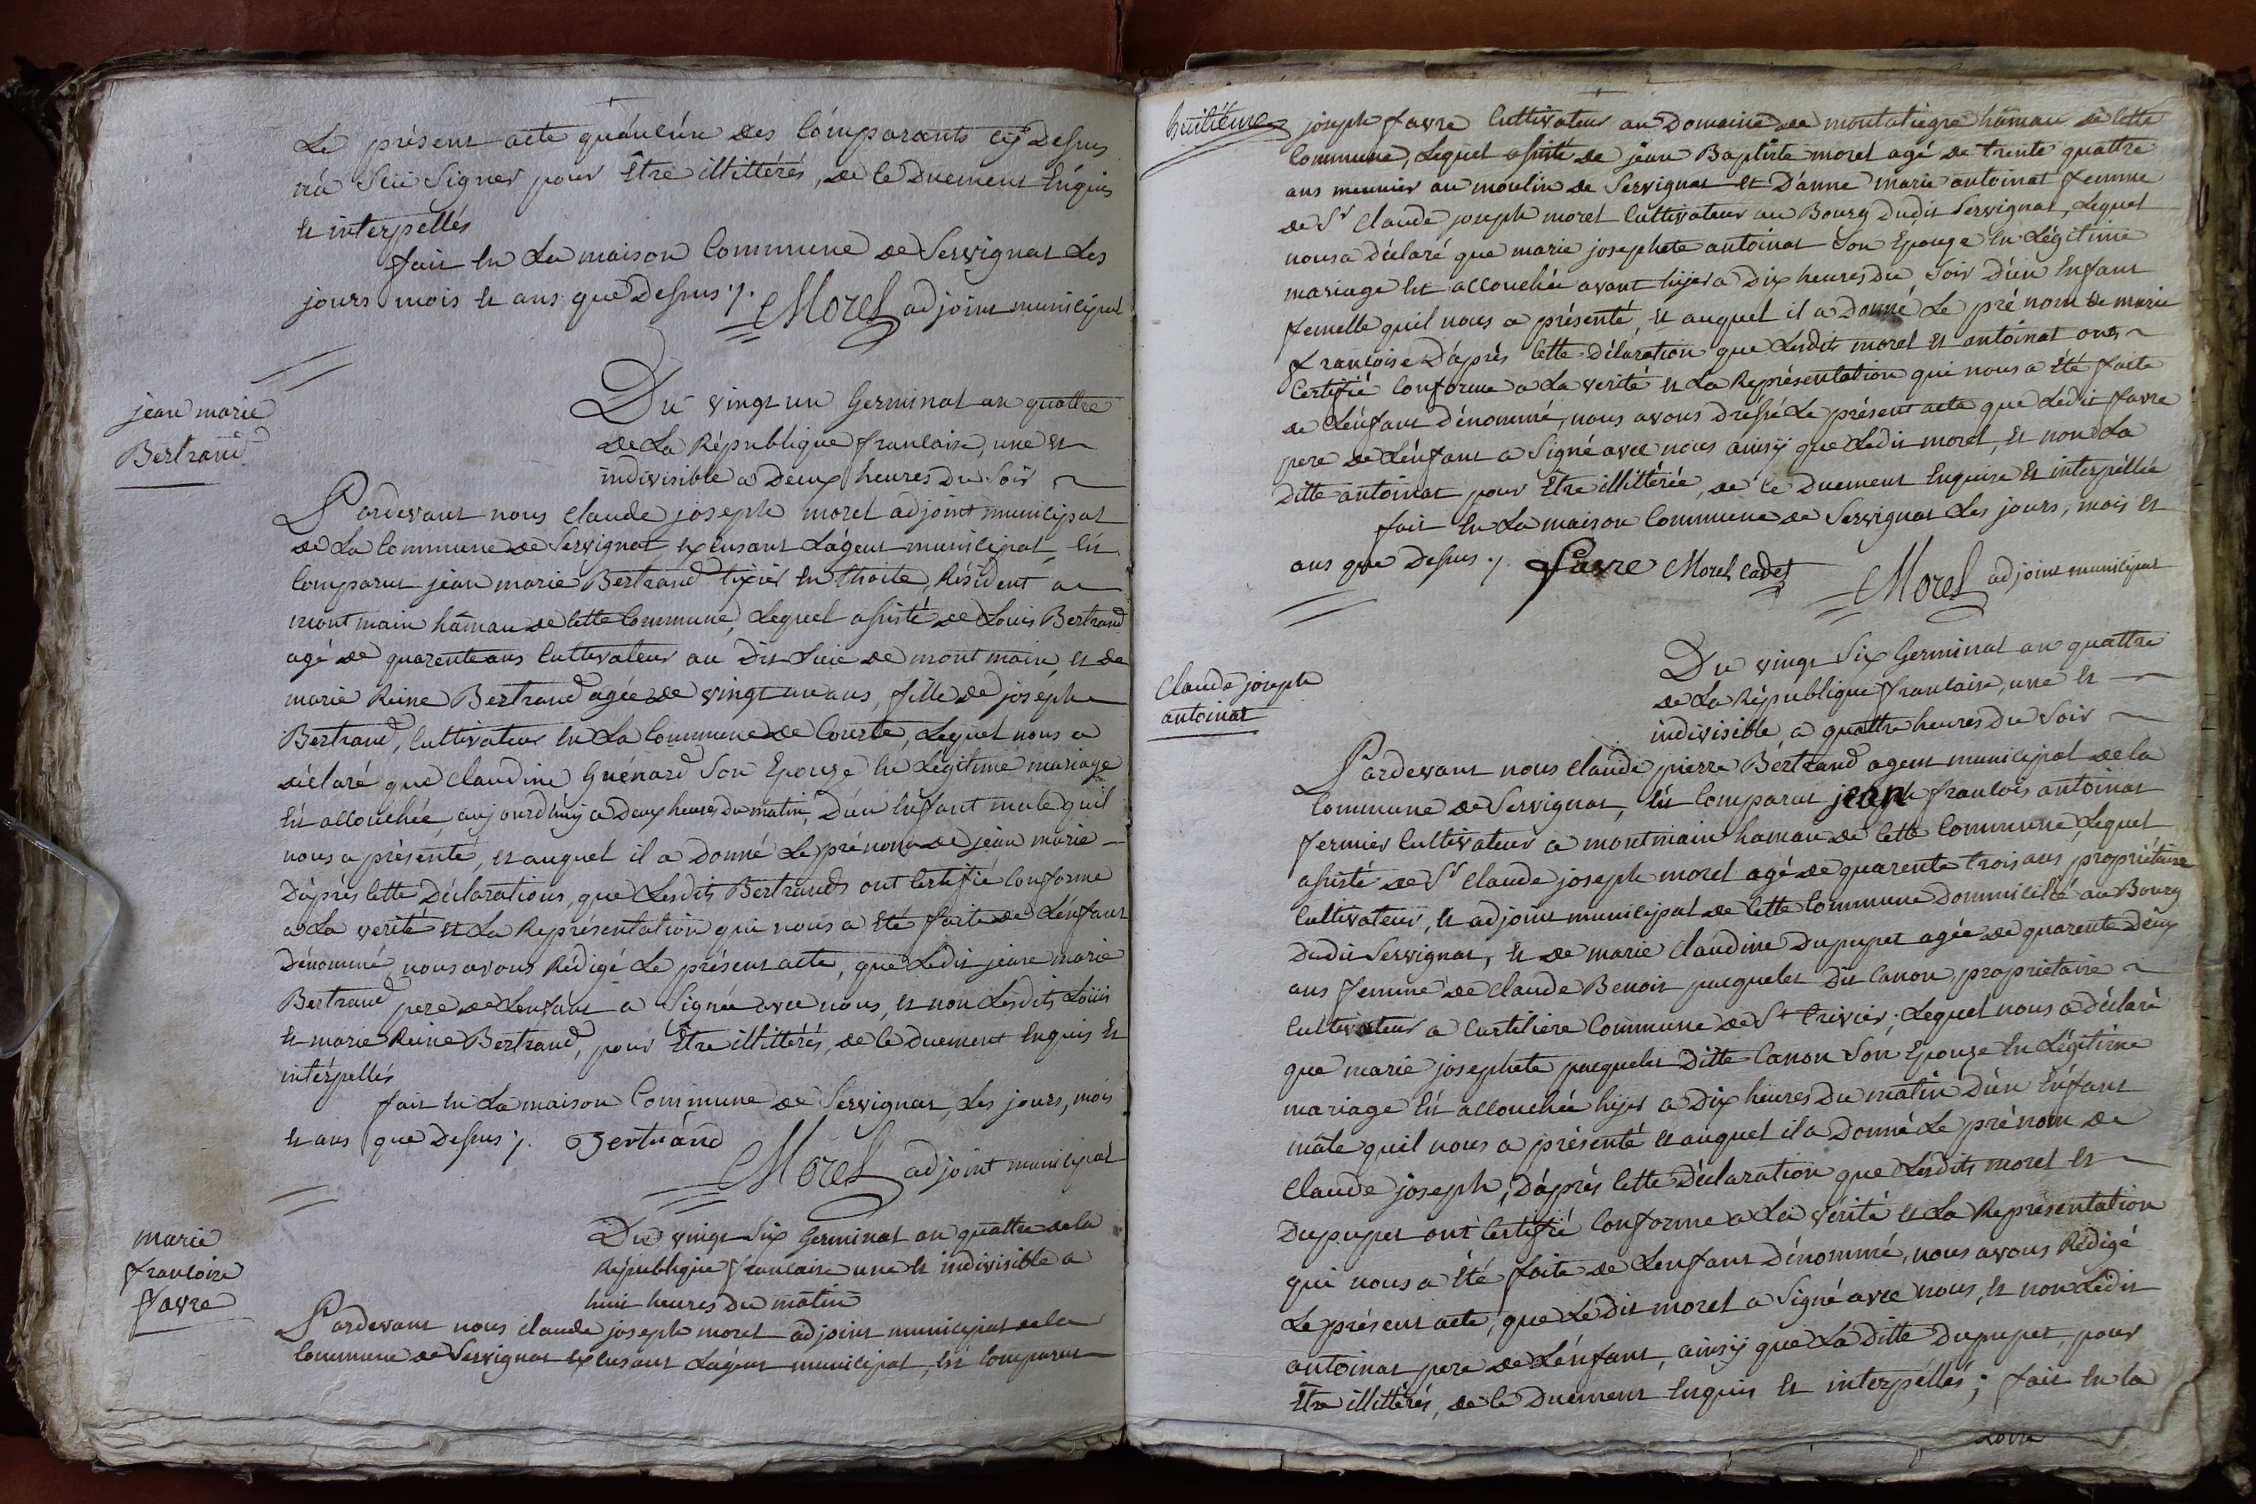 Le présent acte quáucún des Cómparants cÿ Dessus
n'a Sçû Signer pour Être illittérés, de ce Duement Enquis
Et interpellés
fait En La maison Commune de Servignat Les
jours mois et ans que Dessus ./. Morel adjoint municipal
jean marie
Bertrand
Du vingt un Germinal an quattre
de La République francaise, une Et
indivisible a Deux heures Du Soir
Pardevant nous claude joseph morel adjoint municipal
de La Commune de Servignat, Excusant L'agent municipal, Est
Comparut jean marie Bertrand tixier En thoile, Résident a
montmain hâmau de cette Commune, Lequel assisté de Louis Bertrand
agé de quarente ans Cultivateur au Dit Lieu de montmain, et de
marie Reine Bertrand agée de vingt un ans, fille de joséph
Bertrand, Cultivateur En La Commune de Courte, Lequel nous a
déclaré que claudine Guénard Son Epouze En Légitime mariage
Est accouchée aujourd'huÿ a Deux heures Du matin, D'un Enfant mâle qu'il
nous a présenté, et auquel il a Donné Le prénom de jean marie
D'après cette Déclarations, que Lesdits Bertrands ont Certifié Conforme
a La verité et La Représentation qui nous a Eté faite de L'énfant
Dénommé nous avons Rédigé Le présent acte, que Ledit jean marie
Bertrand pere de L'enfant a Signé avec nous, et non Lesdits Louis
Et marie Reine Bertrand, pour Être illittérés, de ce Duement Enquis Et
interpellés
fait En La maison Commune de Servignat, Les jours, mois
Et ans que Dessus ./. Bertrand
Morel adjoint municipal
marie
francoise
favre
Du vingt Six Germinal an quattre de la
République francaise une Et indivisible a
huit heures Du matin
Pardevant nous claude joseph morel adjoint municipal de la
Commune de Servignat Excusant L'agent municipal, Est Comparut
huitiéme
joseph favre Cultivateur au Domaine de montatiegre hâmau de cette
Commune, Lequel assisté de jean Baptiste morel agé de trente quattre
ans meunier au moulin de Servignat Et D'anne marie antoinat femme
de Sr claude joseph morel Cultivateur au Bourg Dudit Servignat, Lequel
nous a Déclaré que marie josephete antoinat Son Epouze En Légitime
mariage Est accouchée avant hÿer a Dix heures Du Soir D'un Enfant
femelle qu'il nous a présenté, Et auquel il a Donné Le prénom de marie
francoise D'après Cette Déclaration que Lesdits morel Et antoinat ont
Certifié Conforme a La verité Et La Représentation qui nous a Eté faite
de L'énfant Dénommé, nous avons Dréssé Le présent acte que Ledit favre
pere de L'énfant a Signé avec nous ainsÿ que Ledit morel, Et non La
Ditte antoinat pour Être illittérée, de ce Duement Enquise Et interpéllée
fait En La maison Commune de Servignat Les jours, mois Et
ans que Dessus ./. favre Morel Cadet Morel adjoint municipal
Claude joseph
antoinat
Du vingt Six Germinal an quattre
de La République francaise, une Et
indivisible a quattre heures Du Soir
Pardevant nous claude pierre Bértrand agent municipal de la
Commune de Servignat, Est Comparut jean francois antoinat
fermier Cultivateur a montmain hamau de Cette Commune, Lequel
assisté de Sr Claude joseph morel agé de quarente trois ans, propriétaire
Cultivateur, Et adjoint municipal de Cette Commune Dommicilié au Bourg
Dudit Servignat, Et de marie claudine Dupupet agée de quarente Deux
ans femme de claude Benoit pacquelet Dit Canon, propriétaire
Cultivateur a Curtiliere Commune de St trivier; Lequel nous a Déclaré
que marie josephete pacquelet Ditte Canon Son Epouze En Légitime
mariage Est accouchée hÿer a Dix heures Du matin D'un Enfant
mâle qu'il nous a présenté Et auquel il a Donné Le prénom de
Claude joseph, D'après Cette Déclaration que Lesdits morel Et
Dupupet ont Certifié Conforme a La vérité Et La Représentation
qui nous a Eté faite de L'enfant Dénommé, nous avons Rédigé
Le présent acte, que Le dit morel a Signé avec nous, Et non Ledit
antoinat pere de L'énfant, ainsÿ que La ditte Dupupet, pour
Être illittérés, de ce Duement Enquis Et interpéllés; fait En la